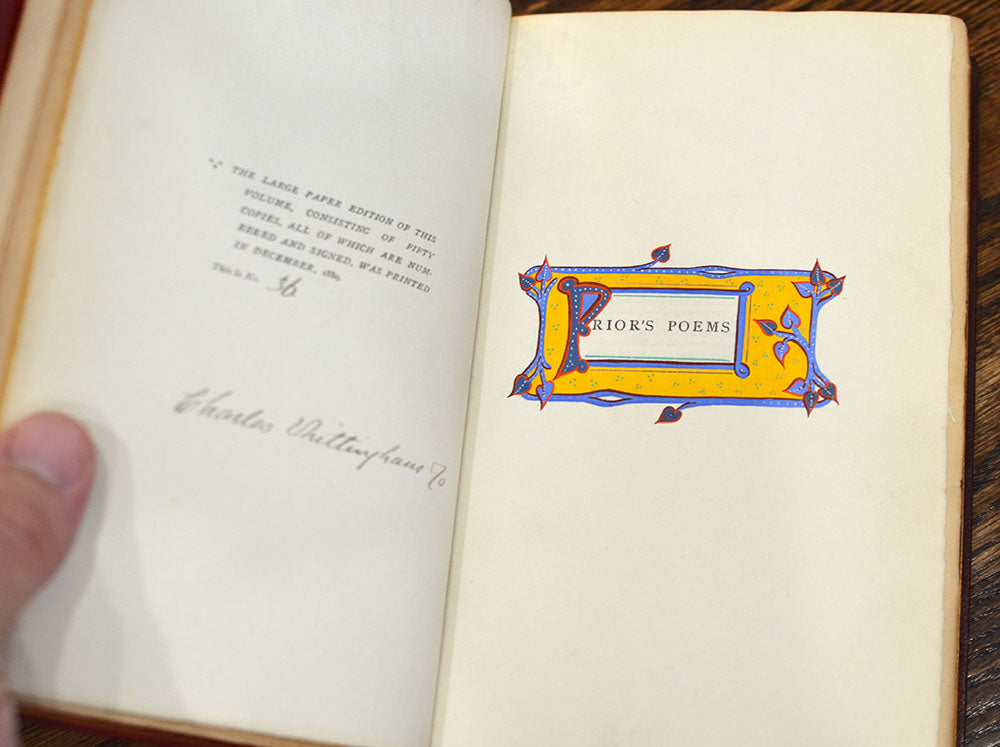 THE LARGE PAPER EDITION OF THIS
VOLUME, CONSISTING OF FIFTY
COPIES, ALL OF WHICH ARE NUM-
BERED AND SIGNED, WAS PRINTED
IN DECEMBER, 1889.
This is No. 36
Charles Whittingham &
PRIOR'S POEMS